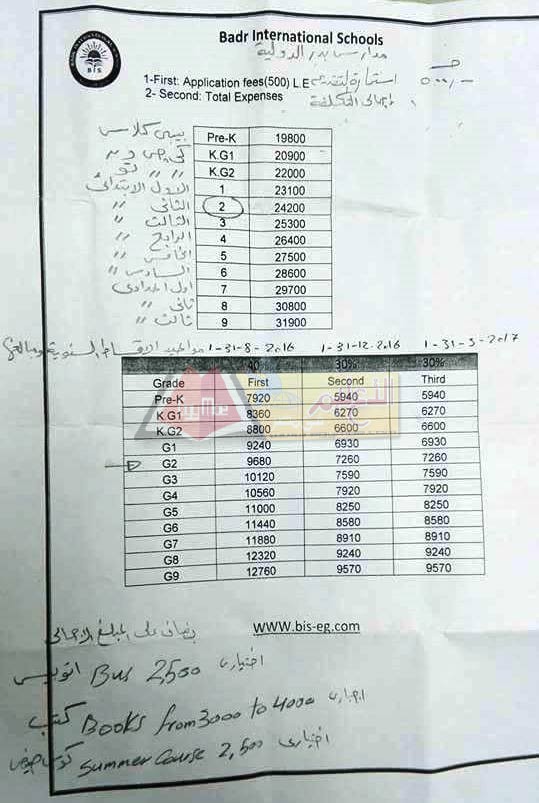 Badr International Schools
مدارس بدر الدولية
1-First: Application fees(500) L.E استمارة تقديم ٥٠٠,-
2- Second: Total Expenses اجمالى التكلفة
بيبى كلاس Pre-K 19800
كى جى ون K.G1 20900
〃 〃 تو K.G2 22000
الاول الابتدائى 1 23100
الثانى 〃 2 24200
الثالث 〃 3 25300
الرابع 〃 4 26400
الخامس 〃 5 27500
السادس 〃 6 28600
اول اعدادى 7 29700
ثانى 〃 8 30800
ثالث 〃 9 31900
مواعيد الاقساط السنوية 1-31-8-2016 1-31-12-2016 1-31-3-2017
40% 30% 30%
Grade First Second Third
Pre-K 7920 5940 5940
K.G1 8360 6270 6270
K.G2 8800 6600 6600
G1 9240 6930 6930
G2 9680 7260 7260
G3 10120 7590 7590
G4 10560 7920 7920
G5 11000 8250 8250
G6 11440 8580 8580
G7 11880 8910 8910
G8 12320 9240 9240
G9 12760 9570 9570
WWW.bis-eg.com
يضاف على المبلغ الاجمالى
اتوبيس Bus 2,500 اختيارى
كتب Books from 3000 to 4000 اجبارى
كورس صيفى Summer Course 2,500 اختيارى